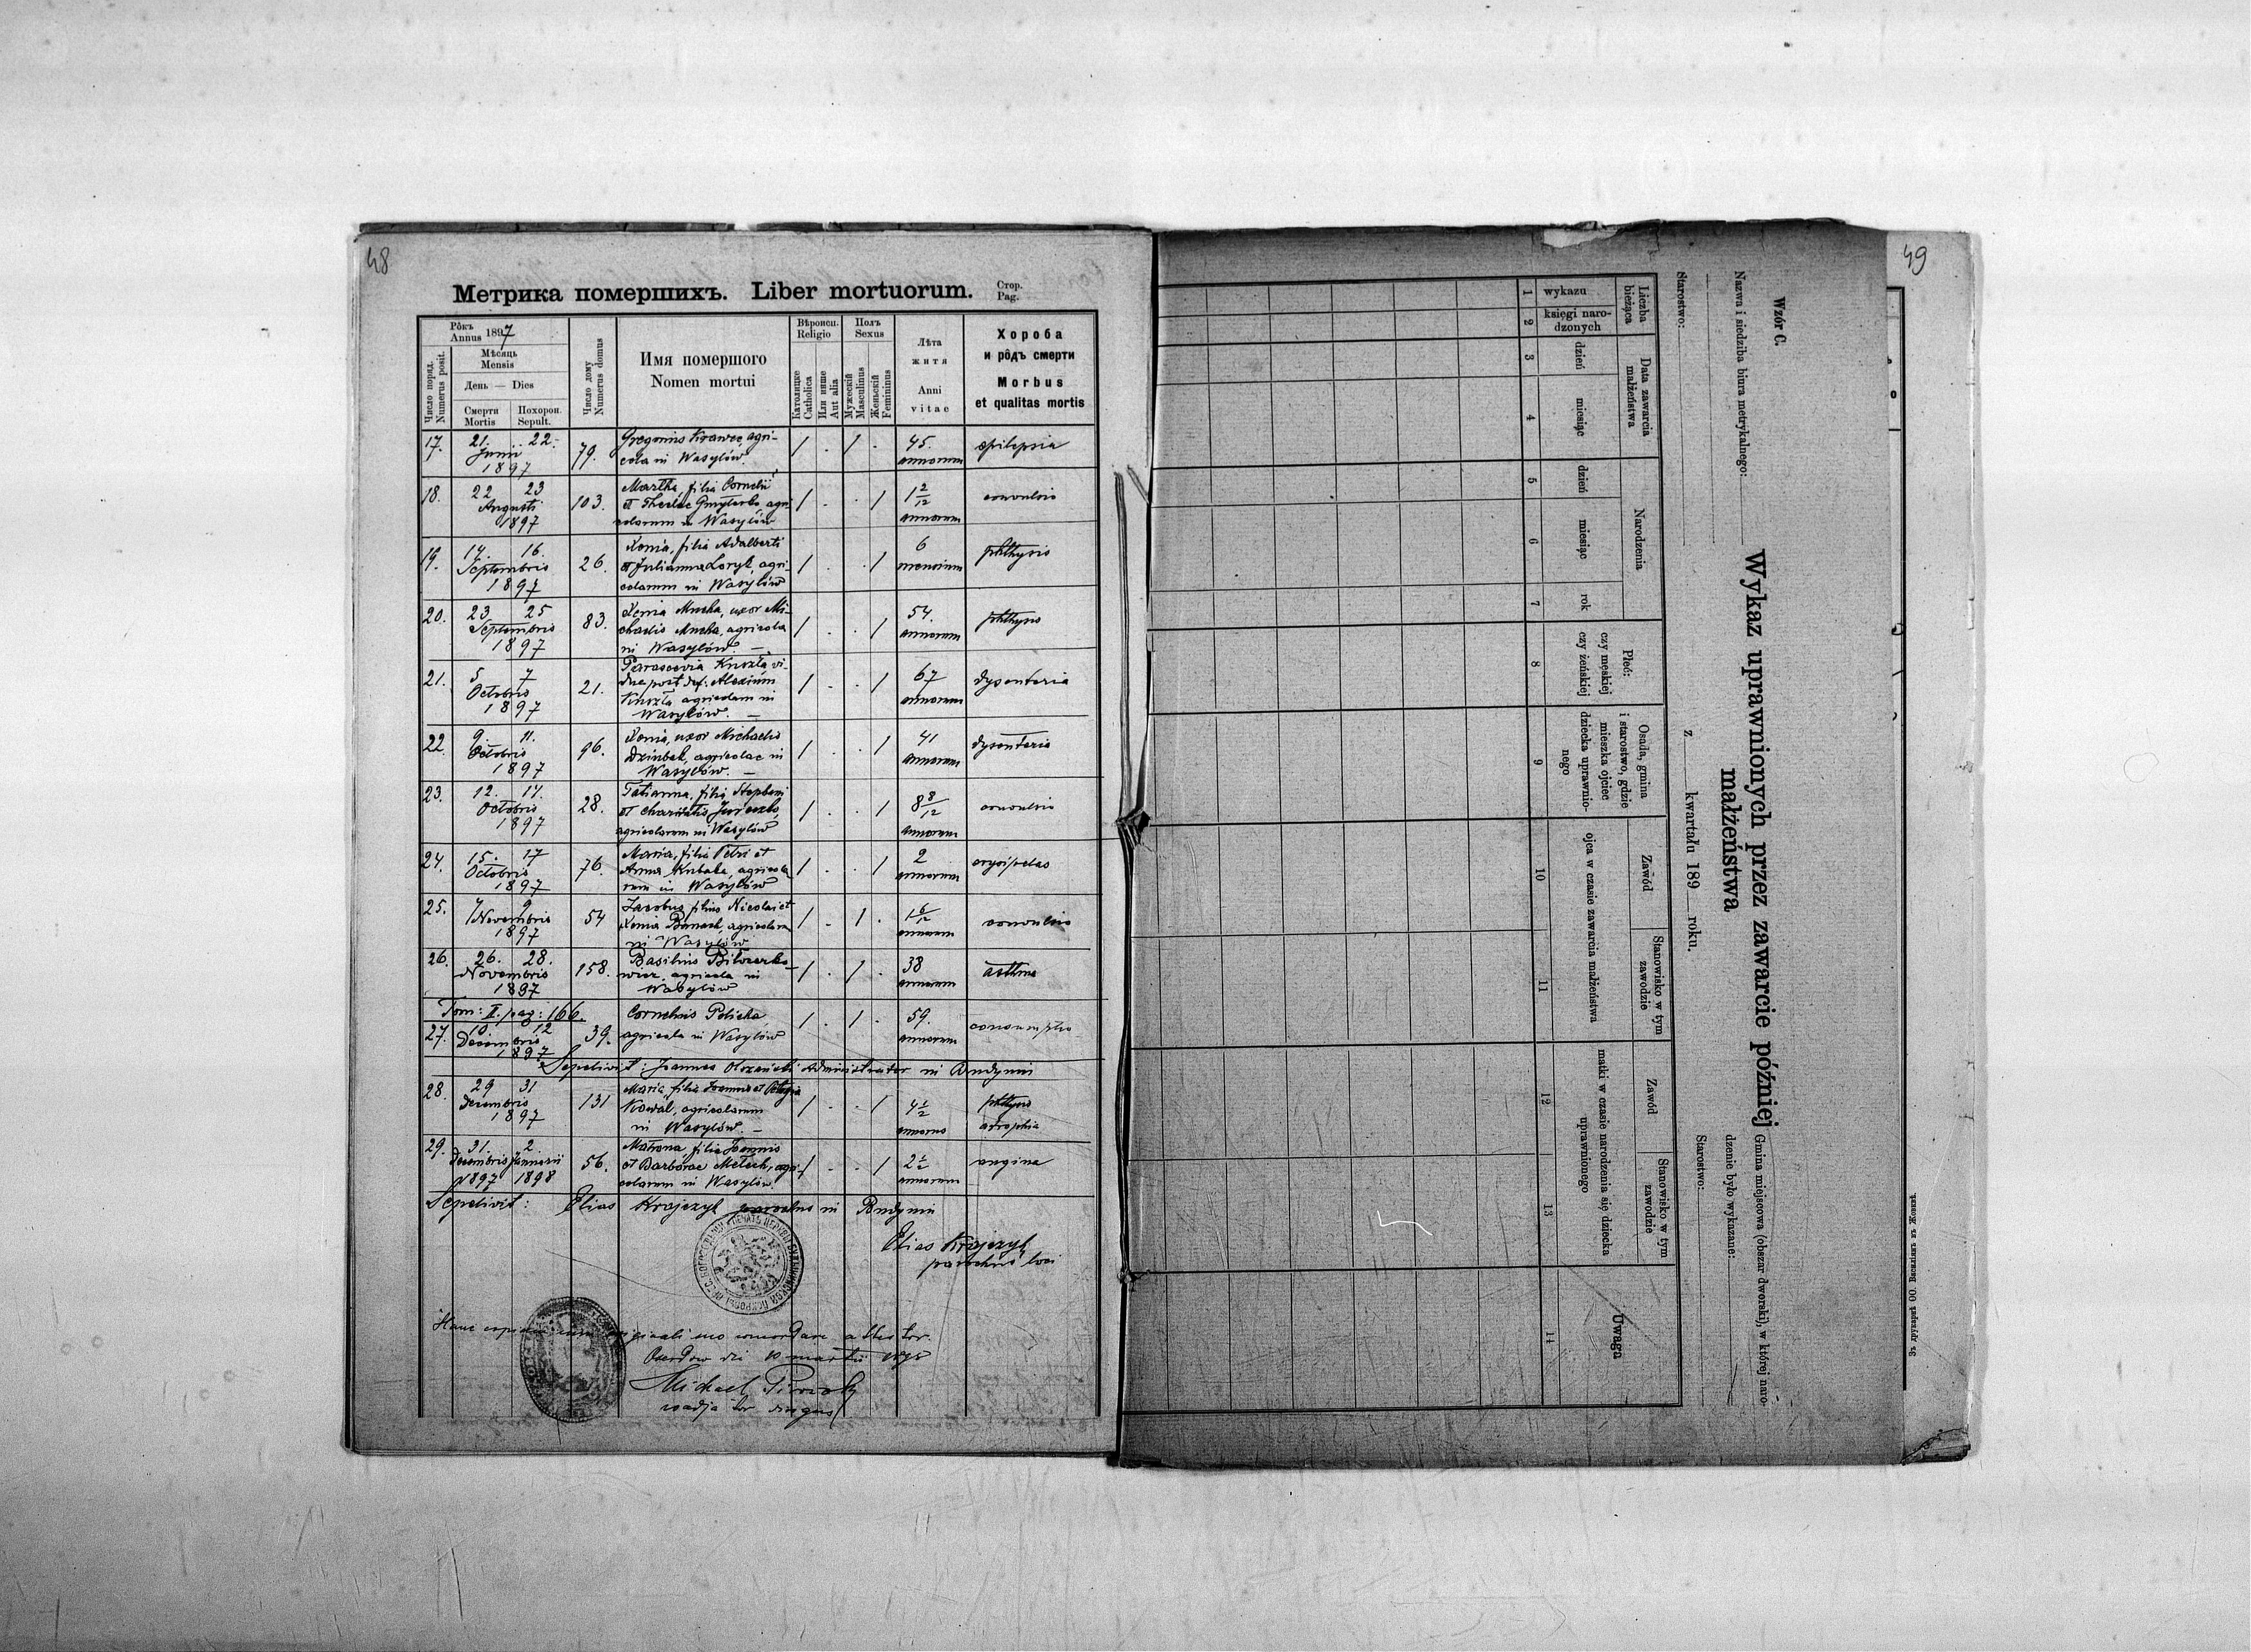 48
Метрика помершихъ. Liber mortuorum. Стор. Pag.
Рôкъ Annus 1897
Число поряд. Numerus posit.
Мѣсяць Mensis
День — Dies
Смерти Mortis
Похорон. Sepult.
Число дому Numerus domus
Имя помершого
Nomen mortui
Вѣроисп. Religio
Католицке Catholica
Или инше Aut alia
Полъ Sexus
Мужескій Masculinus
Женьскій Femininus
Лѣта житя
Anni vitae
Хороба
и рôдъ смерти
Morbus
et qualitas mortis
17. 21. 22. Junii 1897 79. Gregorius Krawec, agri-
cola in Wasylów. 1 . 1 . 45. annorum epilepsia
18. 22 23 Augusti 1897 103. Martha, filia Cornelii
et Theclae agri-
colarum in Wasylów 1 . . 1 1 2/12 annorum convulsio
19. 14. 16. Septembris 1897 26. Xenia, filia Adalberti
et Julianna Loryk, agri-
colarum in Wasylów 1 . . 1 6 mensium phthysis
20. 23 25 Septembris 1897 83. Xenia Mucha, uxor Mi-
chaelis Mucha, agricola
in Wasylów. — 1 . . 1 54. annorum phthysis
21. 5 7 Octobris 1897 21. Parascevia Kuszła, vi-
dua post def. Alexium
Kuszła agricolam in
Wasylów. — 1 . . 1 67 annorum dysenteria
22. 9. 11. Octobris 1897 96. Xenia, uxor Michaelis
Dziubek, agricolae in
Wasylów. — 1 . . 1 41 annorum dysenteria
23. 12. 14. Octobris 1897 28. Tatianna, filia Stephani
et Charitatis Jureczko,
agricolarum in Wasylów 1 . . 1 8 8/12 annorum convulsio
24. 15. 17 Octobris 1897 76. Maria, filia Petri et
Anna Kubaka, agricola
rum in Wasylów 1 . . 1 2 annorum erysipelas
25. 7 9 Novembris 1897 54 Jacobus filius Nicolai et
Xenia Banach, agricolarum
in Wasylów 1 . 1 . 1 6/12 annorum convulsio
26. 26. 28. Novembris 1897 158. Basilius
agricola in
Wasylów 1 . 1 . 38 annorum asthma
Tom: II. pag: 166.
27. 10. 12 Decembris 1897 39. Cornelius Policha,
agricola in Wasylów 1 . 1 . 59. annorum consumptio
Sepelivit: Joannes administrator in Budynin
28. 29 31 Decembris 1897 131 Maria, filia Joannis et Pelagia
Kowal, agricolarum
in Wasylów. — 1 . . 1 4 1/2 annorum phthysis atrophia
29. 31. 2. Decembris Januarii 1897 1898 56. Matrona filia Joannis
et Barbarae Mełech, agri-
colarum in Wasylów. 1 . . 1 2 1/2 annorum angina
Sepelivit: Elias Krajczyk parochus in Budynin
Elias Krajczyk
parochus loci
Hanc copiam cum originali suo concordare attestor.
die 10 martii 1898
Michael
49
Wzór C.
Nazwa i siedziba biura metrykalnego:
Starostwo:
Wykaz uprawnionych przez zawarcie później
małżeństwa
z kwartału 189 roku.
Gmina miejscowa (obszar dworski), w której naro-
dzenie było wykazane:
Starostwo:
Liczba bieżąca
wykazu
księgi naro-
dzonych
Data zawarcia
małżeństwa
dzień
miesiąc
Narodzenia
dzień
miesiąc
rok
Płeć:
czy męskiej
czy żeńskiej
Osada, gmina
i starostwo, gdzie
mieszka ojciec
dziecka uprawnio-
nego
Zawód
Stanowisko w tym
zawodzie
ojca w czasie zawarcia małżeństwa
Zawód
Stanowisko w tym
zawodzie
matki w czasie narodzenia się dziecka
uprawnionego
Uwaga
1 2 3 4 5 6 7 8 9 10 11 12 13 14
Зъ друкарнѣ ОО. Василіянъ въ Жовквѣ.